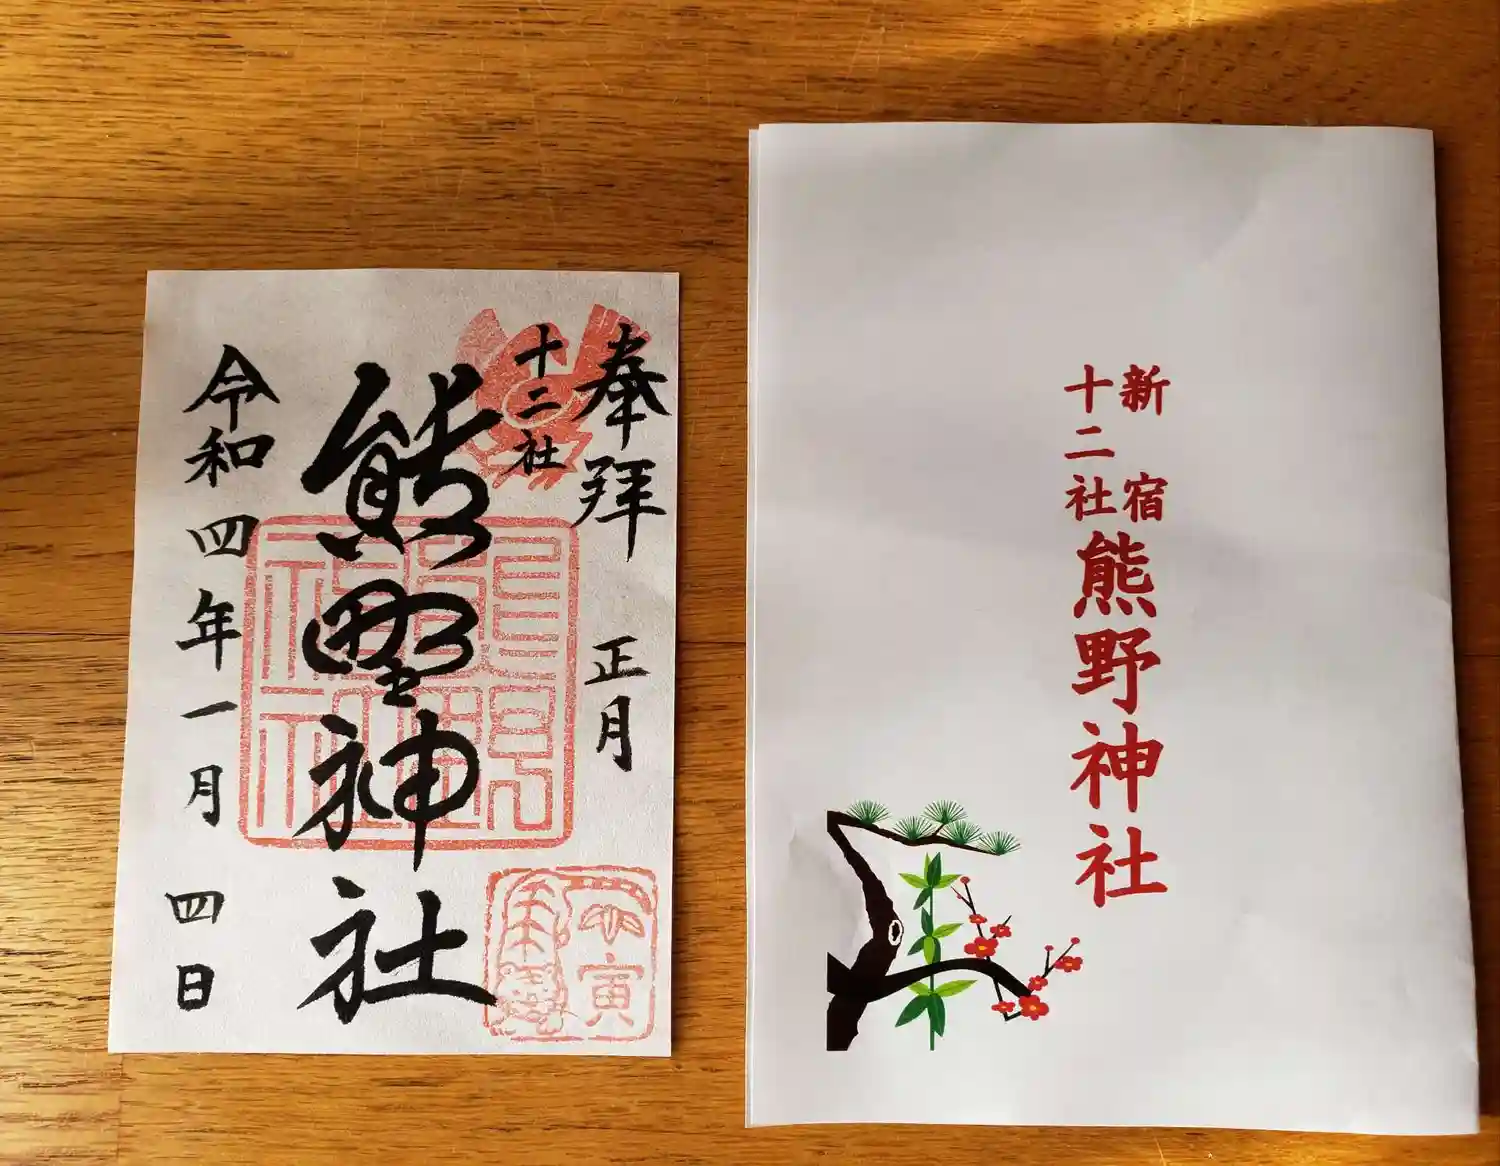 奉拝 正月
十二社
熊野神社
令和四年一月四日
寅
新宿
十二社
熊野神社